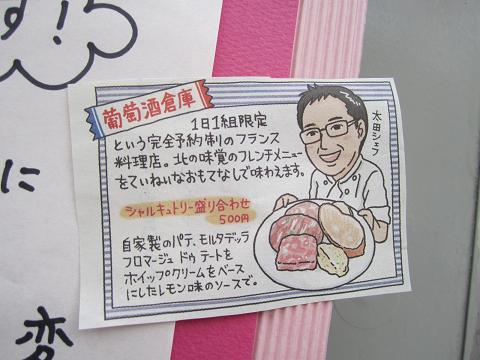 す!
に
変
葡萄酒倉庫
1日1組限定
という完全予約制のフランス
料理店。北の味覚のフレンチメニュー
をていねいなおもてなしで味わえます。
シャルキュトリー盛り合わせ
500円
自家製のパテ、モルタデッラ
フロマージュ ドゥ テートを
ホイップクリームをベース
にしたレモン味のソースで。
太田シェフ